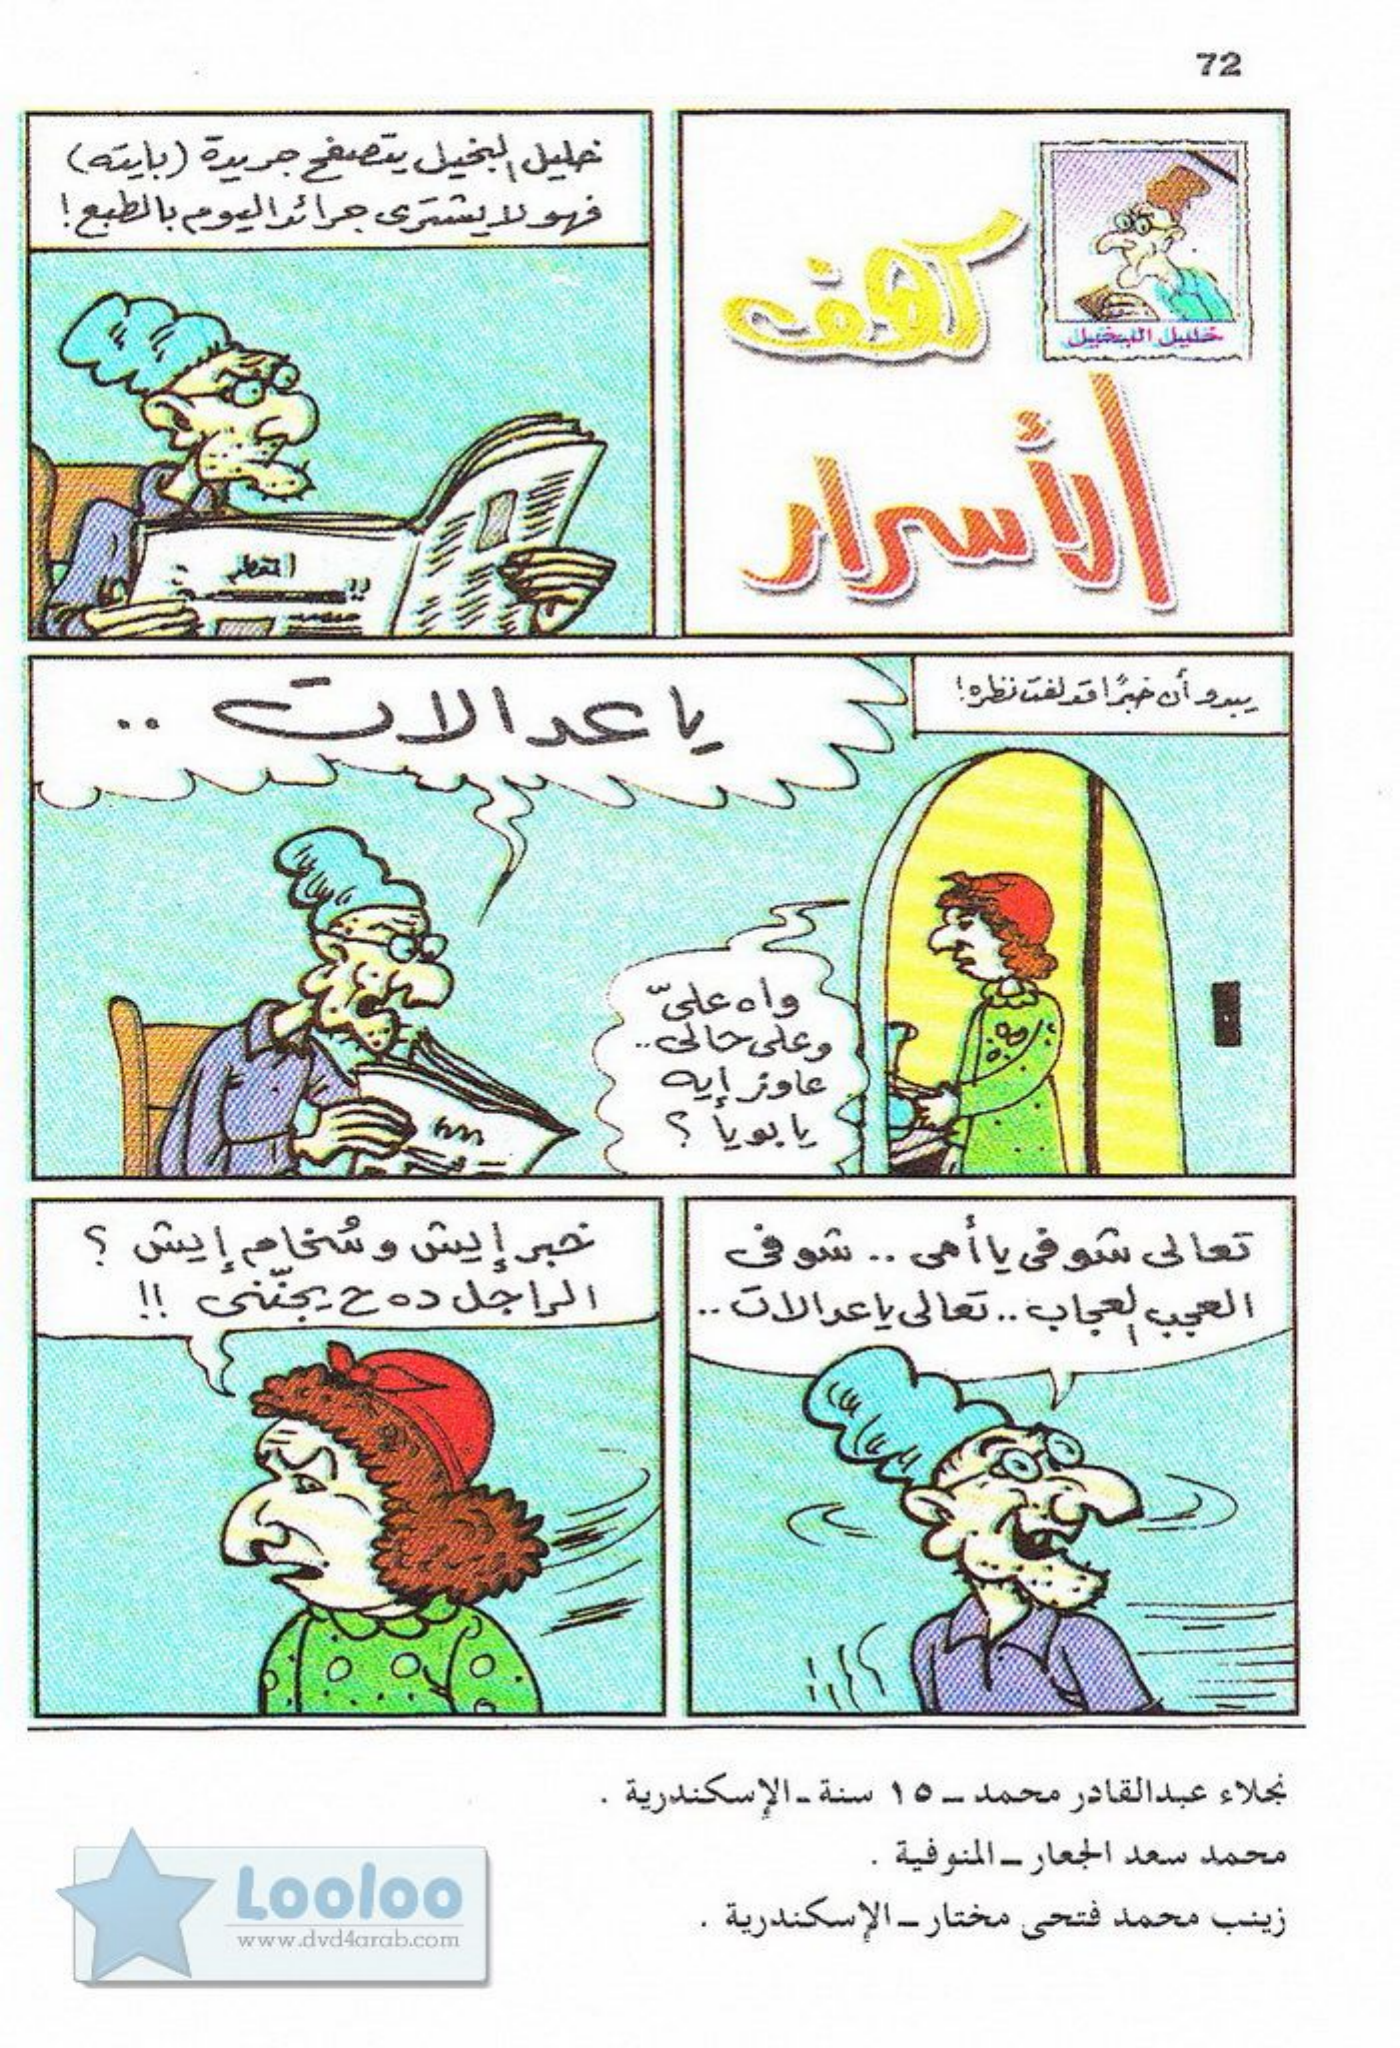 72
خليل البخيل
كهف
الأسرار
خليل البخيل يتصفح جريدة (بايته)
فهو لا يشترى جرائد اليوم بالطبع!
يبدو أن خبرًا قد لفت نظره!
يا عدالات ..
واه علىّ
وعلى حالى..
عاوز إيه
يا بويا ؟
تعالى شوفى يا أمى .. شوفى
العجب العجاب .. تعالى يا عدالات ..
خبر إيش وسُخام إيش ؟
الراجل ده ح يجنّنى !!
نجلاء عبدالقادر محمد ــ ١٥ سنة ــ الإسكندرية .
محمد سعد الجعار ــ المنوفية .
زينب محمد فتحى مختار ــ الإسكندرية .
Looloo
www.dvd4arab.com